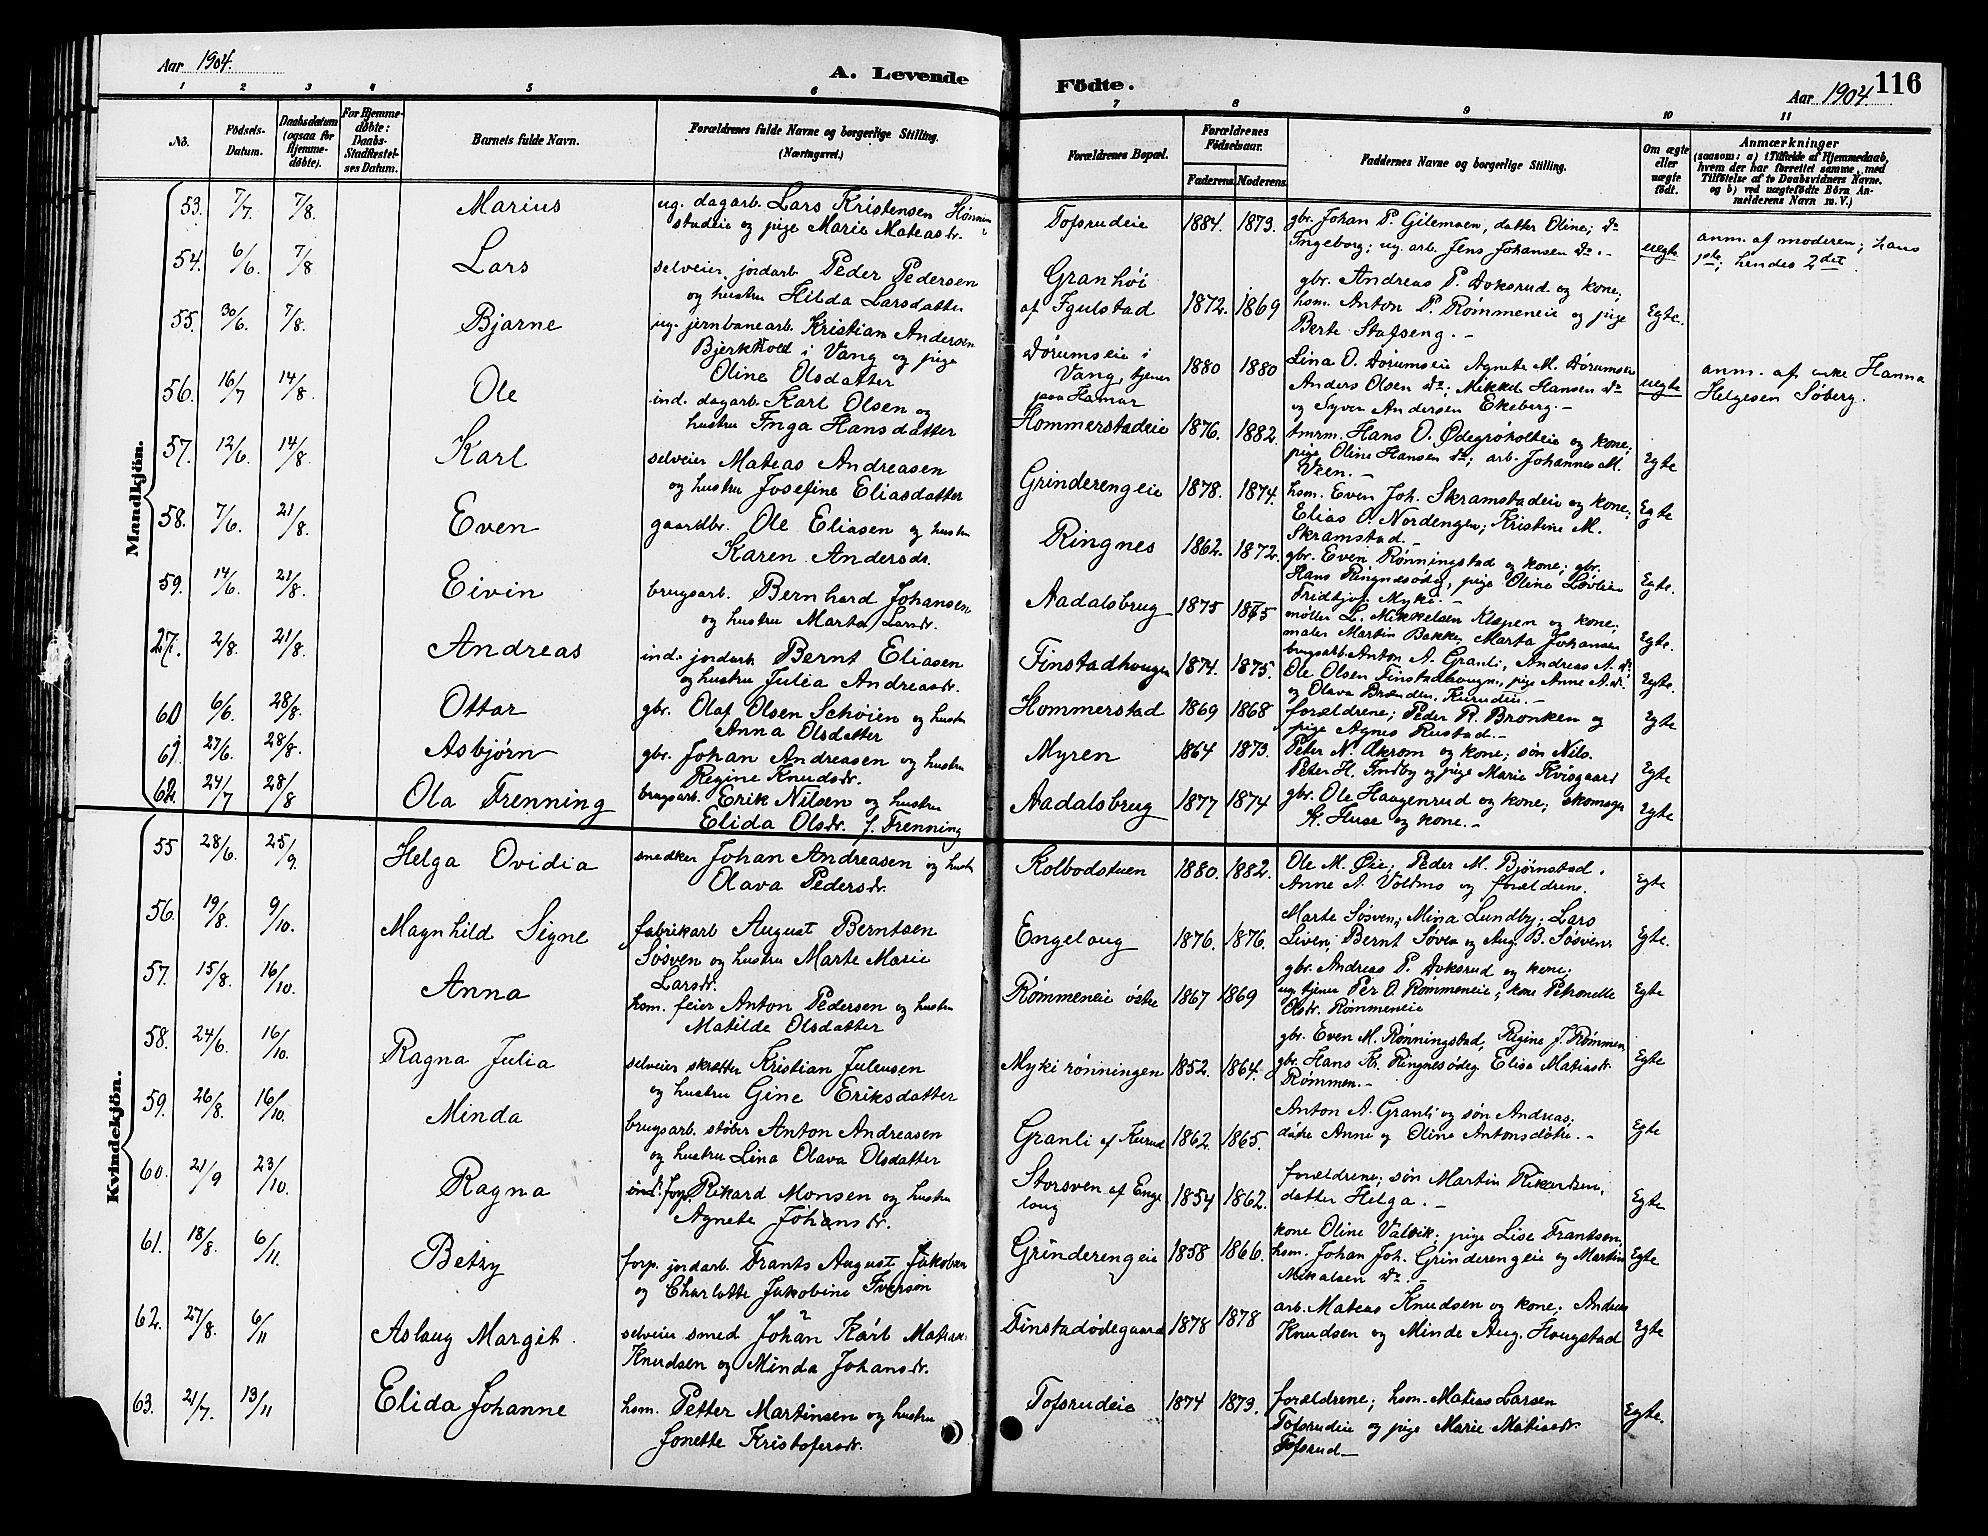 Aar 1904.
A. Levende Födte.
Aar 1904.
116
1 2 3 4 5 6 7 8 9 10 11
No.
Födsels-
Datum.
Daabsdatum
(ogsaa for
Hjemme-
døbte).
For Hjemme-
døbte:
Daabs-
Stadfæstel-
ses Datum.
Barnets fulde Navn.
Forældrenes fulde Navne og borgerlige Stilling.
(Næringsvei.)
Forældrenes Bopæl.
Forældrenes
Födselsaar.
Faderens. Moderens.
Faddernes Navne og borgerlige Stilling.
Om ægte
eller
uægte
født.
Anmærkninger
(saasom: a) i Tilfælde af Hjemmedaab,
hvem der har forrettet samme, med
Tilföielse af to Daabsvidners Navne.
og b) ved uægtefödte Börn An-
melderens Navn m. V.)
Mandkjön.
53. 7/7. 7/8. Marius
ug. dagarb. Lars Kristensen
studeie og pige Marie Mateasdr.
Tofsrudeie 1884. 1873.
gbr. Johan P. Gilemoen, datter Oline; do
Ingeborg; ug. arb. Jens Johansen do. -
uegte
anm. af moderen; hans
1ste; hendes 2det.
54. 6/6. 7/8 Lars
selveier, jordarb. Peder Pedersen
og hustru Hilda Larsdatter
Granhöi
af Igulstad 1872. 1869
gbr. Andreas P. Doksrud og kone;
hsm. Anton P. Rømmeneie og pige
Berte Stafseng. -
Egte.
55. 30/6. 7/8. Bjarne
ug. jernbanearb. Kristian Andersen
Bjerkhold i Vang og pige
Oline Olsdatter
Dørumseie i
Vang, tjener
paa Hamar 1880 1880
Lina O. Dørumseie Agnete M. Dørumseie
Anders Olsen do; Mikkel Hansen do
og Syver Andersen Ekeberg. -
uegte
anm. af enke Hanna
Helgesen Søberg.
56. 16/7 14/8 Ole
ind. dagarb. Karl Olsen og
hustru Inga Hansdatter
Hommerstadeie 1876. 1882.
tmrm. Hans O. Ødegrøholteie og kone;
pige Oline Hansen do; arb. Johannes M.
Veen. -
Egte
57. 12/6. 14/8. Karl
selveier Mateas Andreasen
og hustru Josefine Eliasdatter
Grinderengeie 1878. 1874.
hsm. Even Joh. Skramstadeie og kone;
Elias O. Nordengen; Kristine M.
Skramstad. -
Egte
58. 7/6. 21/8. Even
gaardbr. Ole Eliasen og hustru
Karen Andersdr.
Ringnes 1862. 1872.
gbr. Even Rønningstad og kone; gbr.
Hans Ringnesødeg, pige Oline Løvlien
Fridtjof Myki. -
Egte.
59. 14/6. 21/8. Eivin
brugsarb. Bernhard Johansen
og hustru Marta Larsdr.
Aadalsbrug 1875 1875
møller L. Mikkelsen Klæpen og kone;
maler Martin Bakke, Marta Johansen
Egte.
27. 2/8. 21/8. Andreas
ind. jordarb. Bernt Eliasen
og hustru Julia Andreasdr.
Finstadhougen 1874. 1875.
brugsarb. Anton A. Granli, Andreas A. do
Ole Olsen Finstadhougen, pige Anne A. do
og Olava Brænden, Kurudeie. -
Egte.
60 6/6. 28/8. Ottar
gbr. Olaf Olsen Schøien og hustru
Anna Olsdatter
Hommerstad 1869 1868
forældrene; Peder R. Bronken og
pige Agnes Rustad. -
Egte
61 27/6. 28/8. Asbjørn
gbr. Johan Andreasen og hustru
Regine Knudsdr.
Myren 1864 1873.
Peter N. Akrom og kone; søn Nils.
Peter H. Indby og pige Marie Kvisgaard
Egte
62. 24/7 28/8 Ola Frenning
brugsarb. Erik Nilsen og hustru
Elida Olsdr. f. Frenning
Aadalsbrug 1877 1874
gbr. Ole Haagenrud og kone; skomager
K. Huse og kone. -
Egte
Kvindekjön.
55 28/6. 25/9. Helga Ovidia
snedker Johan Andreasen og hustru
Olava Pedersdr.
Kolbodstuen 1880. 1882.
Ole M. Øie; Peder M. Bjørnstad.
Anne A. Voldmo og forældrene.
Egte
56. 19/8. 9/10. Magnhild Signe
fabrikarb August Berntsen
Søsven og hustru Marte Marie
Larsdr.
Engeloug 1876. 1876.
Marte Søsven; Mina Lundby; Lars
Liven; Bernt Søven og Aug. B. Søsven.
Egte.
57. 15/8. 16/10. Anna
hsm. feier Anton Pedersen og hustru
Matilde Olsdatter
Rømmeneie østre 1867 1869
gbr. Andreas P. Doksrud og kone;
ug. tjener Per O. Rømmeneie; kone Petronelle
Olsdr. Rømmeneie
Egte
58. 24/6. 16/10. Ragna Julia
selveier skræder Kristian Juleusen
og hustru Gine Eriksdatter
Myki rønningen 1852. 1864.
gbr. Even M. Rønningstad, Regine J. Rømmen,
gbr. Hans Kr. Ringnesødeg Elisa Matiasdr
Rømmen. -
Egte
59. 26/8. 16/10. Minda
brugsarb. støber Anton Andreasen
og hustru Lina Olava Olsdatter
Granli af Kurud 1862. 1865.
Anton A. Granli og søn Andreas,
døtre Anne og Oline Antonsdøtre. -
Egte
60. 21/9 23/10. Ragna
ind. forp. Rikard Monsen og hustru
Agnete Johansdr.
Storsven af Enge
loug 1854 1862.
forældrene; søn Martin Rikardsen,
datter Helga. -
Egte
61. 18/8. 6/11. Betzy
forp. jordarb. Frants August Jakobsen
og Charlotte Jakobine Iverson
Grinderengeie 1858 1866.
kone Oline Valvik; pige Lise Frantsen,
hsm. Johan Joh. Grinderengeie og Martin
Mikalsen do. -
Egte
62. 27/8. 6/11 Aslaug Margit.
selveier smed Johan Karl Mateas
Knudsen og Minda Johansdr.
Finstadødegaard 1878 1878
arb. Mateas Knudsen og kone; Andreas
Knudsen og Minde Aug. Hougstad
Egte
63. 21/7. 13/11 Elida Johanne
hsm. Petter Martinsen og hustru
Jonette Kristofersdr.
Tofsrudeie 1874 1873.
forældrene; hsm. Matias Larsen
Tofsrudeie og pige Marie Matiasdr.
Tofsrud -
Egte.